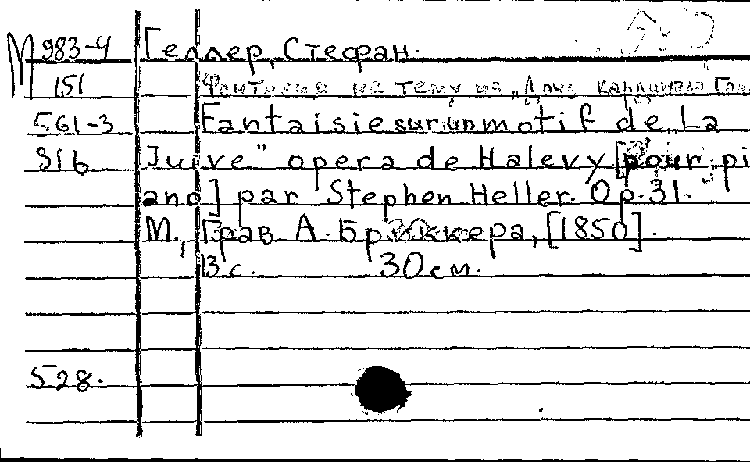 М 983-4 Геллер, Стефан.
151 Фантазия на тему из "Дочь кардинала"
561-3 Fantaisie sur un motif de „La
316 Juive" opera de Halevy [pour pi
ano] par Stephen Heller. Op. 31.
М., Грав. А. Бриккера, [1850].
13 с. 30 см.
528.